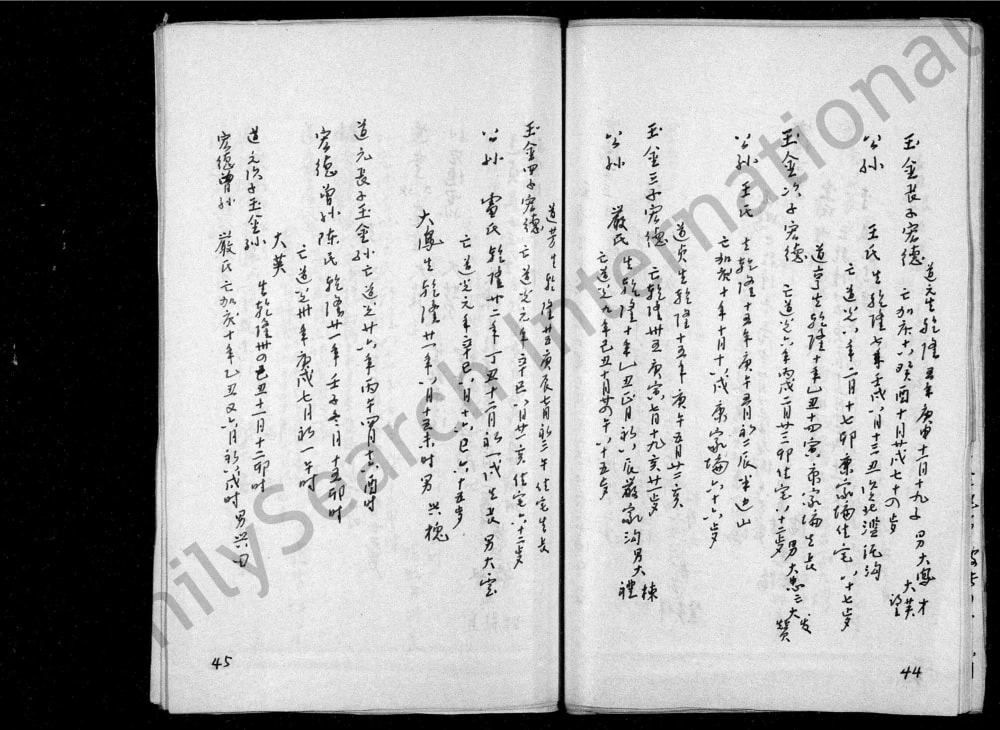 道元生乾隆五年庚申十一月十九子 男大鳳才
大英
望
玉金長子宏德 亡加庆十六癸酉十月廿戌七十の岁
公孙 王氏 生乾隆七年壬戌八月十三丑
亡道光八年二月十七卯康家壪住宅八十七岁
道亨生乾隆十年乙丑十四寅康家壪生長
玉金次子宏德 亡道光六年丙戌二月廿三卯住宅八十二岁 男大忠三大发
贊
公孙 王氏 生乾隆十五年庚午五月初二辰
亡加庆十年十月十六戌康家壪六十六岁
道贞生乾隆十五年庚午五月廿二亥
玉金三子宏德 亡乾隆卅五庚寅七月十九亥廿一岁
公孙 嚴氏 生乾隆十年乙丑正月初六辰嚴家沟 男大棟
禮
亡道光九年己丑十月廿の午八十五岁
44
道芳生乾隆廿五庚辰七月初三午住宅生長
玉金四子宏德 亡道光元年辛巳八月廿一亥住宅六十二岁
公孙 雷氏 乾隆廿二年丁丑十二月初一戌生長 男大雲
亡道光元年辛巳八月十六巳六十五岁
大鳳生乾隆廿一年八月十五未时男 興槐
道元長子玉金孙亡道光廿六年丙午四月十六酉时
宏德曾孙陳氏乾隆廿一年壬子冬月十五卯时
亡道光卅年庚戌七月初一午时
大英 生乾隆卅の己丑十一月十二卯时
道元次子玉金孙
宏德曾孙 嚴氏亡加庆十年乙丑又六月初六戌时 男興田
45
FamilySearch International